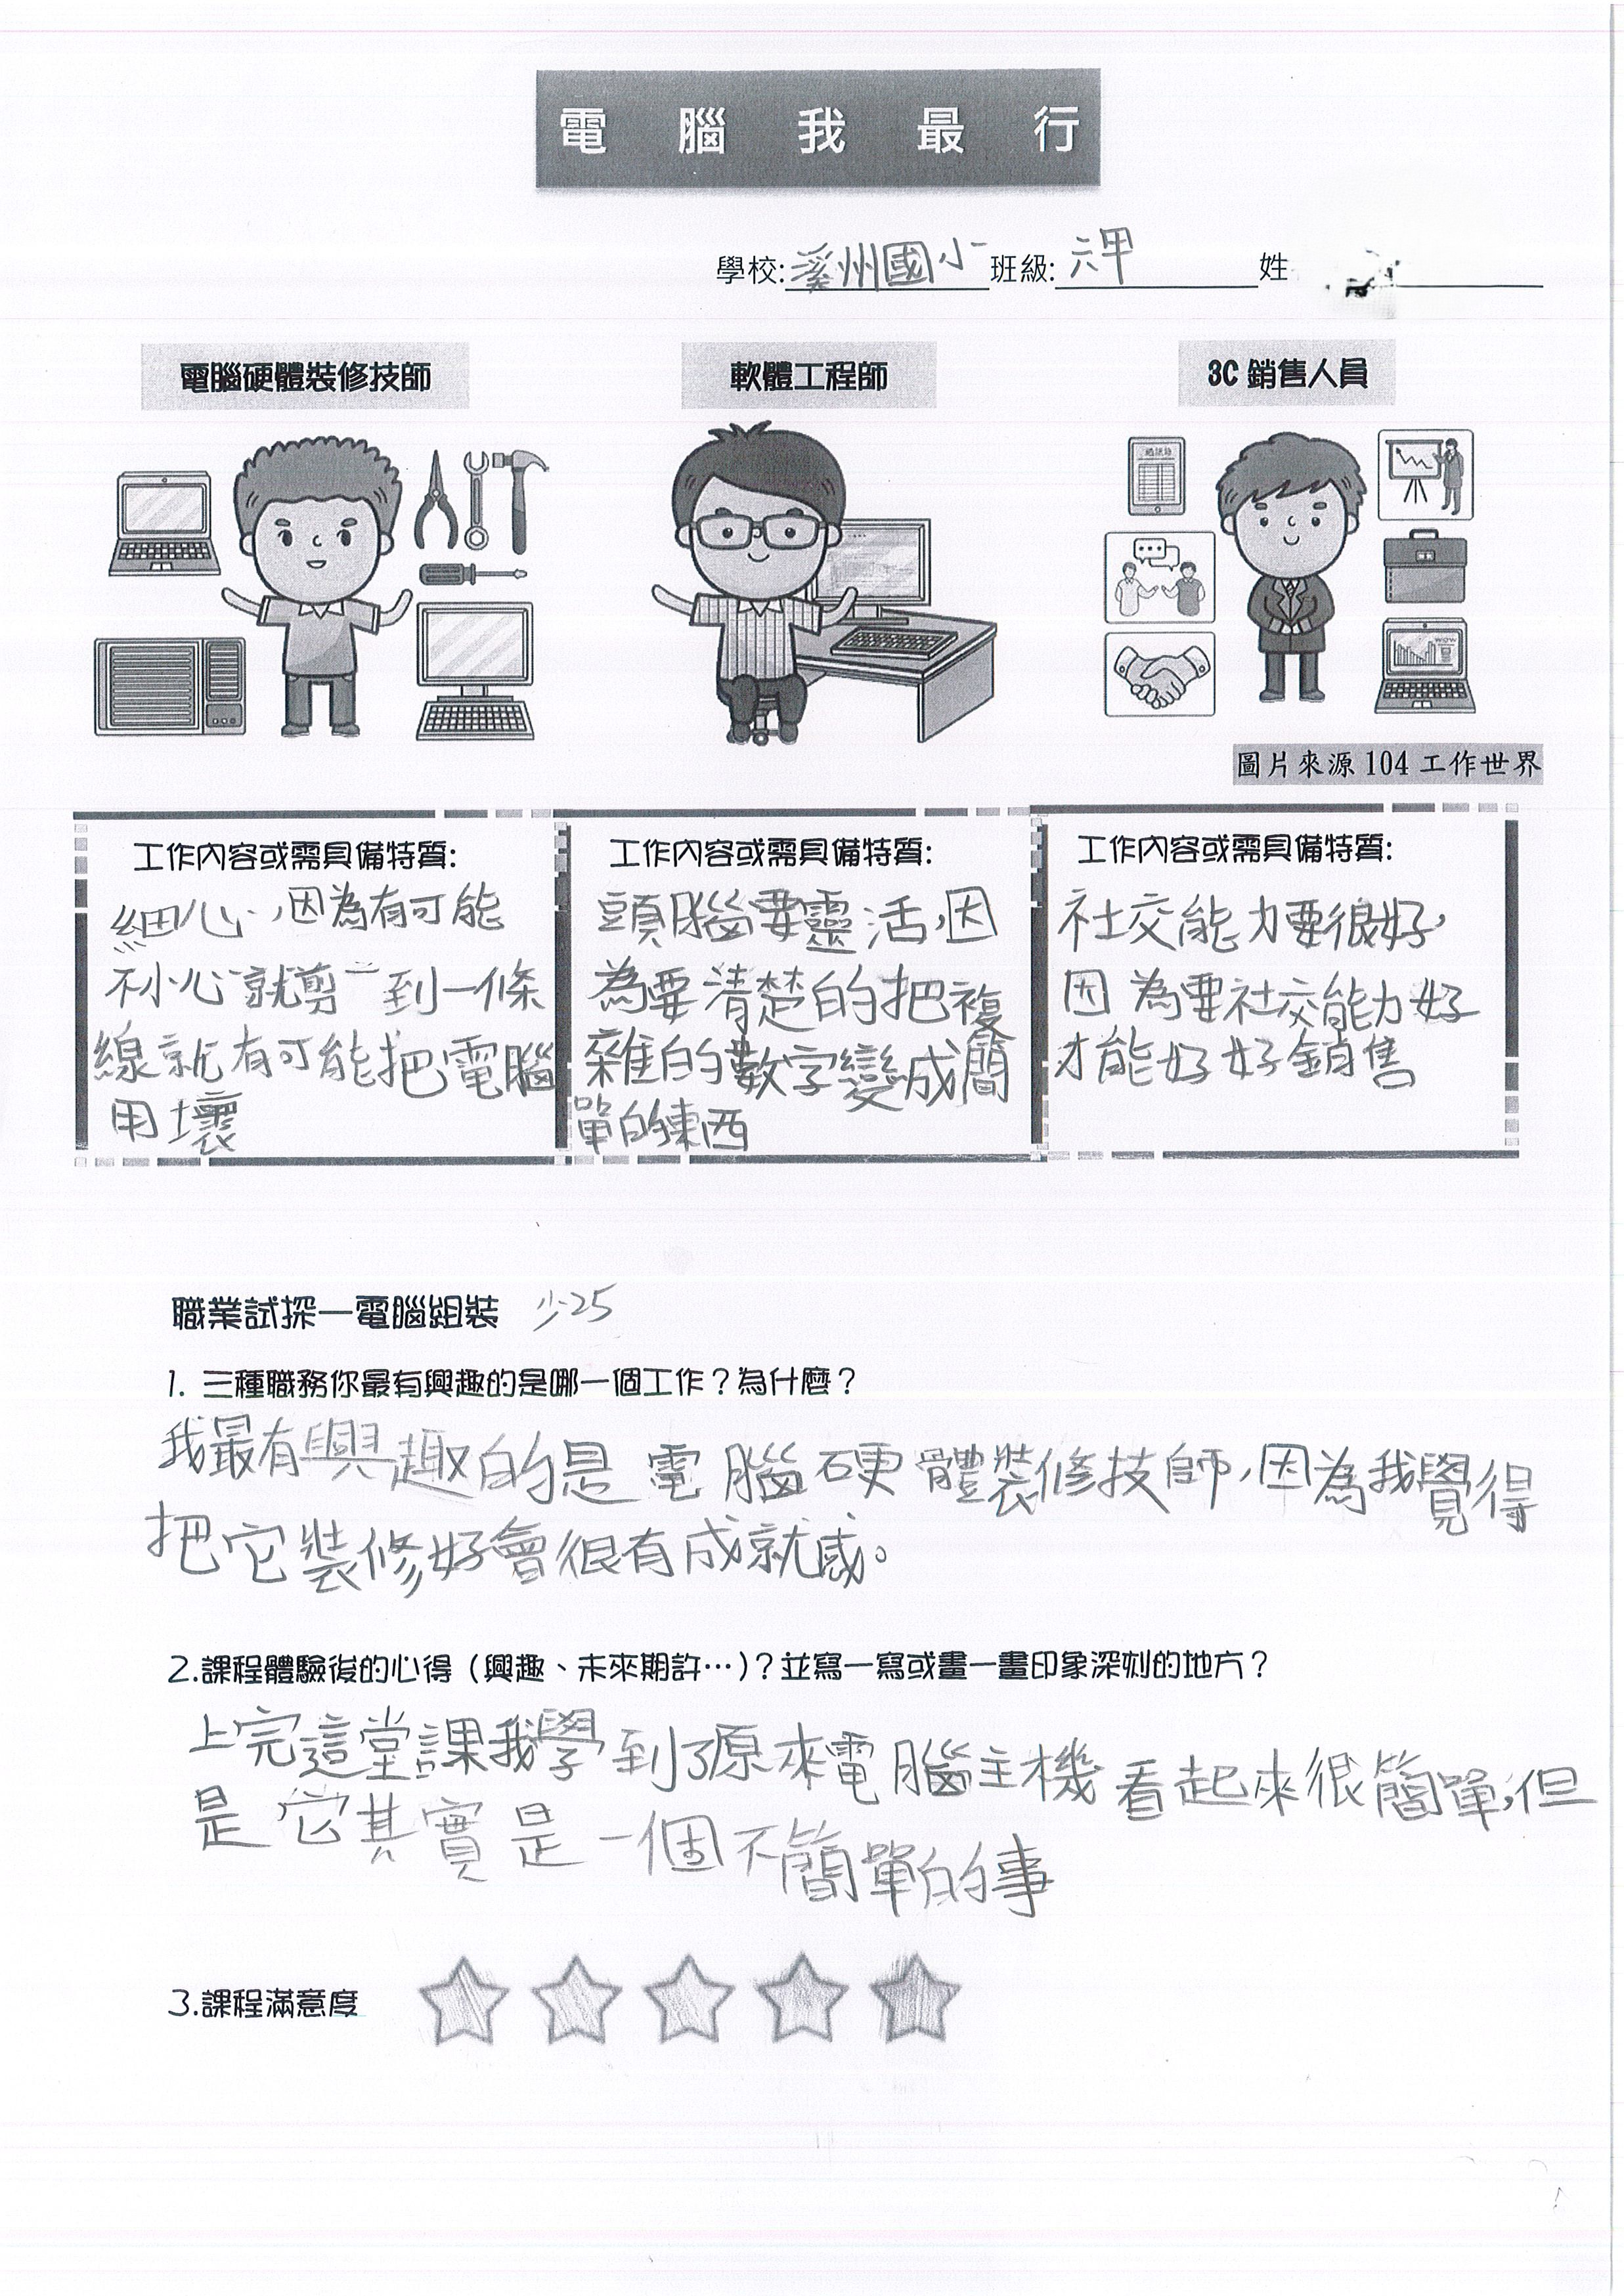 電腦我最行
學校:溪州國小 班級:六甲 姓
電腦硬體裝修技師
軟體工程師
3C 銷售人員
圖片來源 104 工作世界
工作內容或需具備特質:
細心,因為有可能
不小心就剪到一條
線就有可能把電腦
用壞
工作內容或需具備特質:
頭腦要靈活,因
為要清楚的把複
雜的數字變成簡
單的東西
工作內容或需具備特質:
社交能力要很好,
因為要社交能力好
才能好好銷售
職業試探—電腦組裝
1. 三種職務你最有興趣的是哪一個工作?為什麼?
我最有興趣的是電腦硬體裝修技師,因為我覺得
把它裝修好會很有成就感。
2.課程體驗後的心得(興趣、未來期許…)?並寫一寫或畫一畫印象深刻的地方?
上完這堂課我學到了原來電腦主機看起來很簡單,但
是它其實是一個不簡單的事
3.課程滿意度